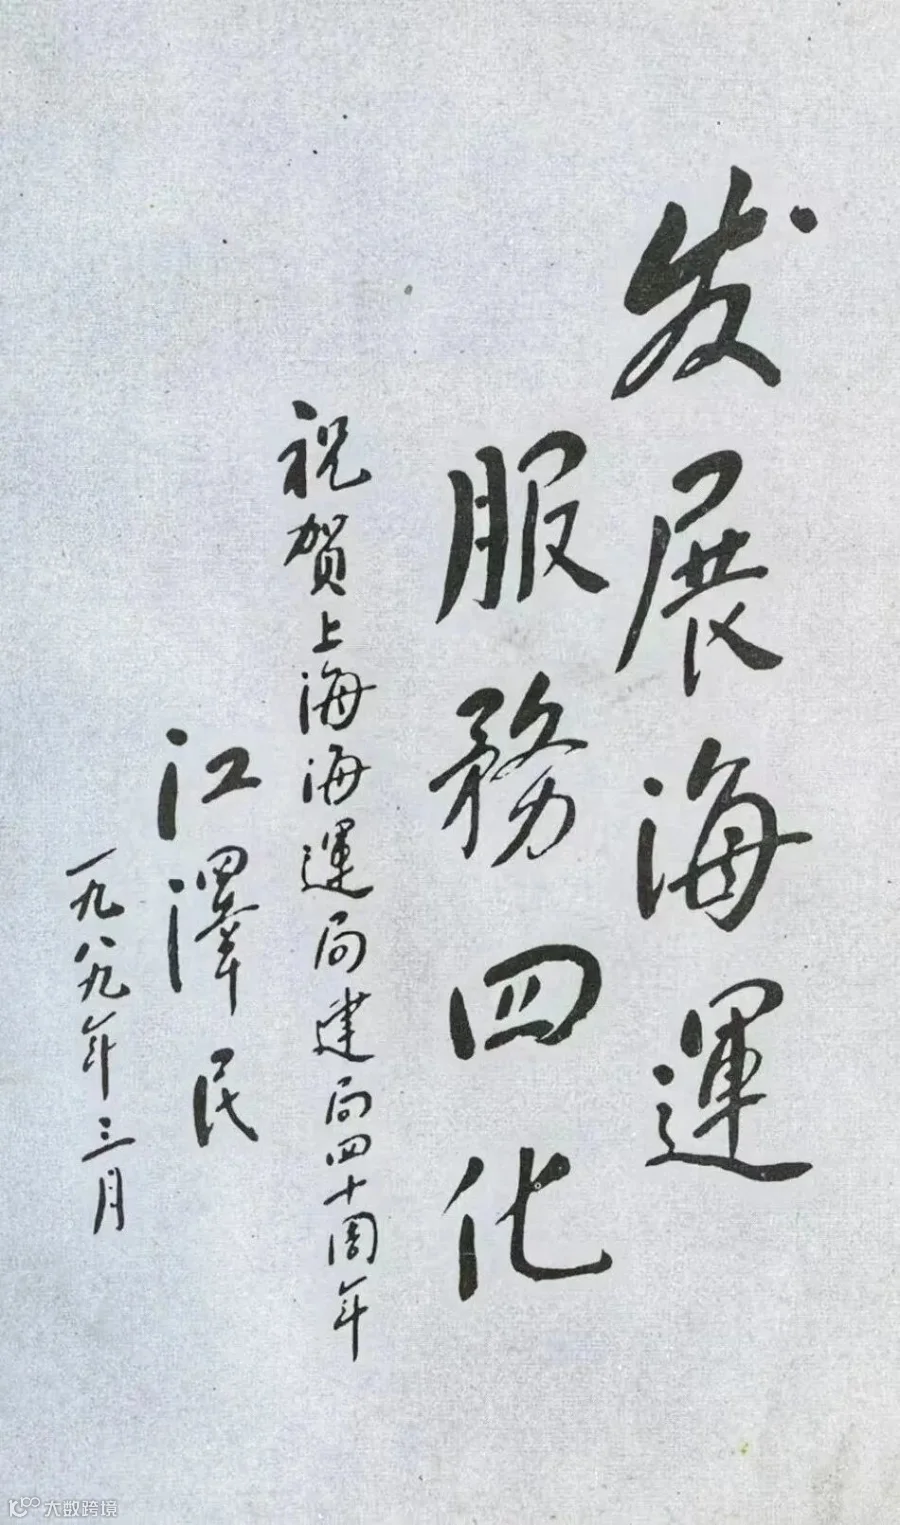 发展海運
服務四化
祝賀上海海運局建局四十周年
江澤民
一九八九年三月
大数跨境